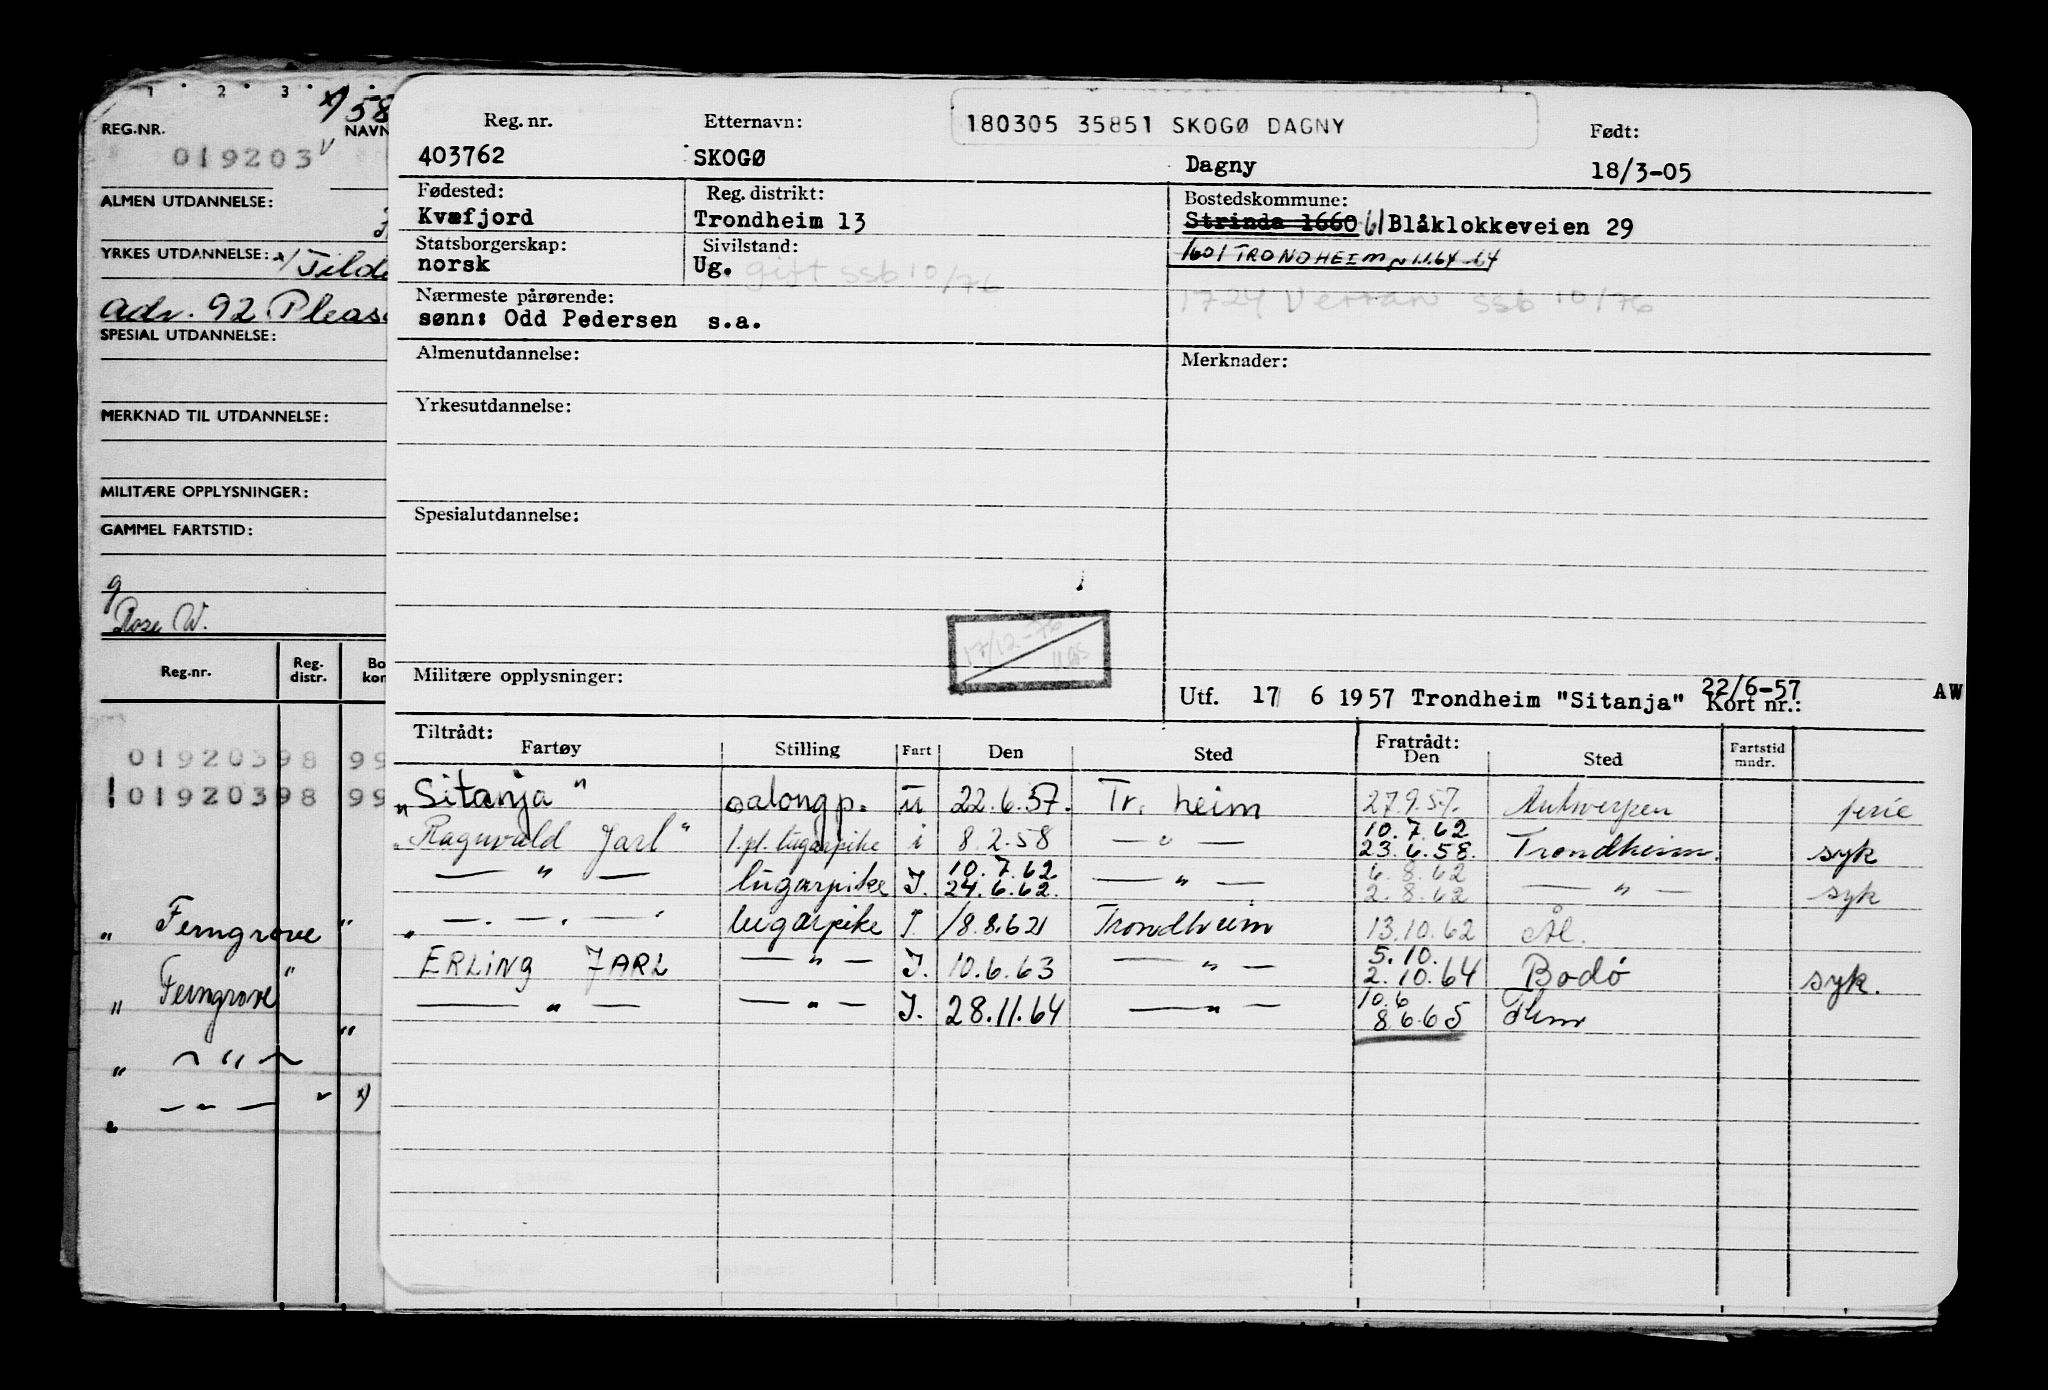 1 · 2 · 3 ·
x) 58
REG.NR. NAVN
019203 v
ALMEN UTDANNELSE:
YRKES UTDANNELSE: x) Tilde
adr. 92 Pleas
SPESIAL UTDANNELSE:
MERKNAD TIL UTDANNELSE:
MILITÆRE OPPLYSNINGER:
GAMMEL FARTSTID:
g
Rose W.
Reg.nr. Reg. distr. Bo kon
01920398 99
01920398 99
„ Ferngrove "
„ Ferngrove "
„ — " —
— " — v x)
Reg. nr. Etternavn: 180305 35851 SKOGØ DAGNY Født:
403762 SKOGØ Dagny 18/3-05
Fødested: Reg. distrikt: Bostedskommune:
Kvæfjord Trondheim 13 Strinda 1660 61 Blåklokkeveien 29
Statsborgerskap: Sivilstand: 1601 TRONDHEIM 1.1.64
norsk Ug. gift ssb 10/76
Nærmeste pårørende: 1724 Verran ssb 10/76
sønn: Odd Pedersen s.a.
Almenutdannelse: Merknader:
Yrkesutdannelse:
Spesialutdannelse:
17/12-76
Militære opplysninger:
Utf. 17 6 1957 Trondheim "Sitanja" 22/6-57 Kort nr.: AW
Tiltrådt: Fratrådt:
Fartøy Stilling Fart Den Sted Den Sted Fartstid mndr.
„Sitanja" salongp. u 22.6.57. Tr. heim 27.9.57. Antwerpen ferie
„Ragnvald Jarl" 1.pl. lugarpike i 8.2.58 — " — 10.7.62 23.6.58. Trondheim. syk
— " — lugarpike I. 10.7.62 24.6.62. — " — 6.8.62 2.8.62 — " — syk
„ — . — . — " lugarpike I. 18.8.62 Trondheim 13.10.62 Ål.
ERLING JARL — " — I. 10.6.63 — " — 5.10. 2.10.64 Bodø syk.
— " — — " — I. 28.11.64 — " — 10.6 8.6.65 Thm